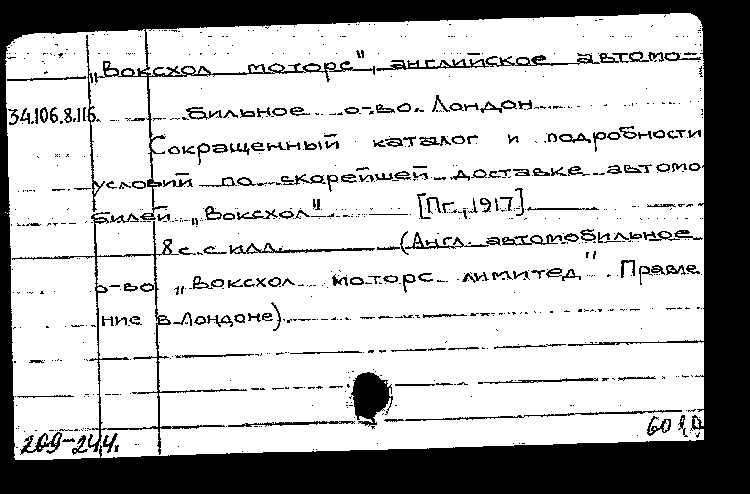 „Воксхол моторс", английское автомо=
34.106.8.116. бильное о-во. Лондон
Сокращенный каталог и подробности
условий по скорейшей доставке автомо
билей „Воксхол" [Пг., 1917].
8 с. с илл. (Англ. автомобильное
о-во „Воксхол моторс лимитед". Правле
ние в Лондоне).
269-244.